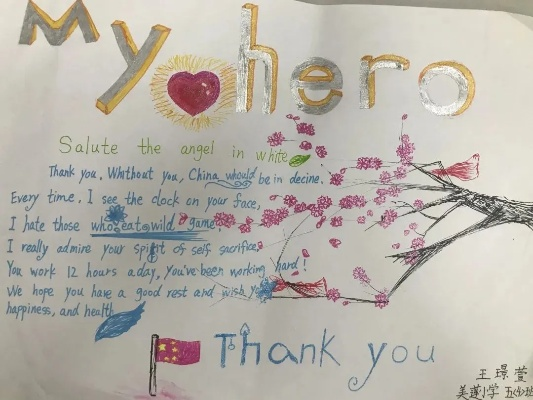 My hero
Salute the angel in white
Thank you. Whithout you, China whould be in decine.
Every time. I see the clock on your face,
I hate those who eat wild game.
I really admire your spirit of self sacrifice,
You work 12 hours a day, You've been working hard!
We hope you have a good rest and wish you
happiness, and health
Thank you
王璟萱
美莲小学 五(4)班